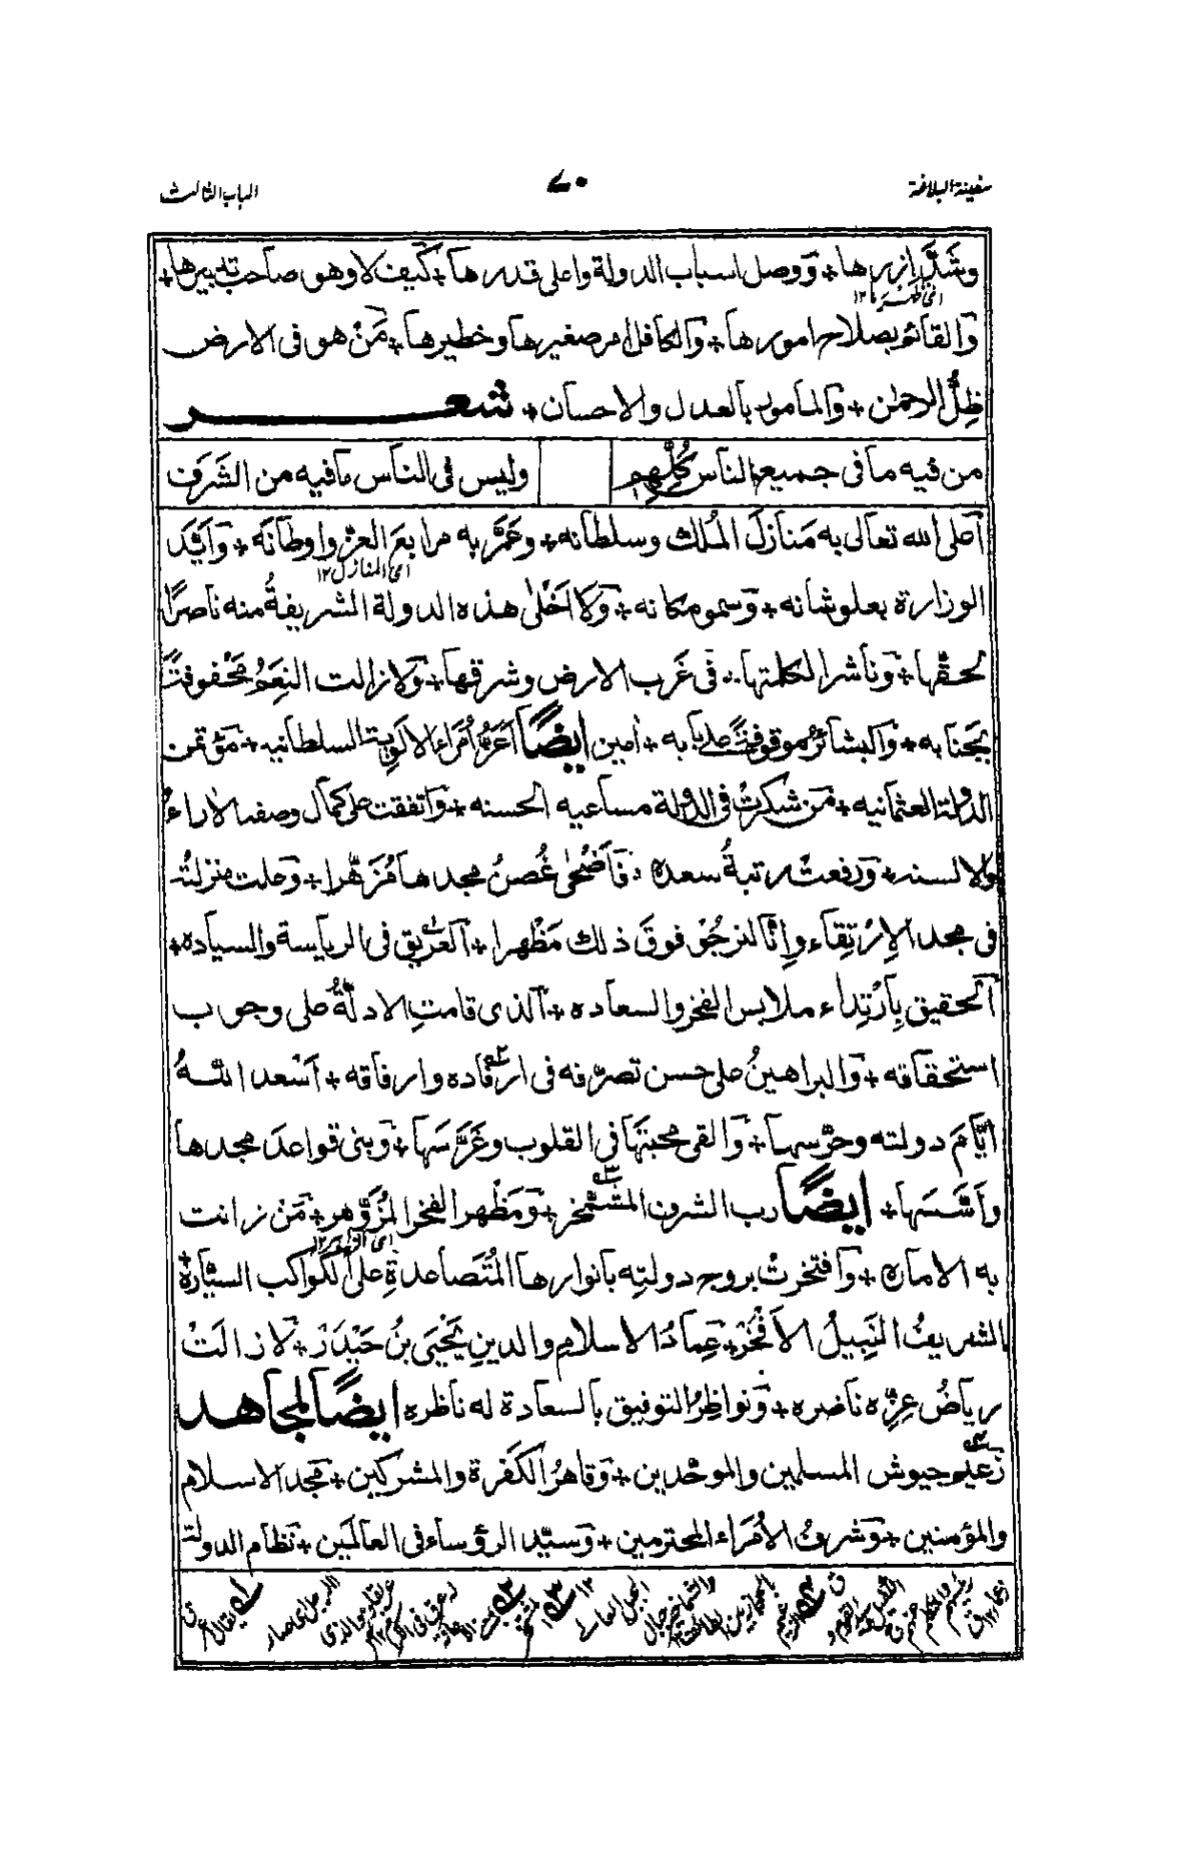 سفينة البلاغة
٧٠
الباب الثالث
وشَدَّ ازرها + وَوصل اسباب الدولة واعلى قدرها + كَيف لا وهو صاحب تدبيرها +
اى ظهرها ١٢
وَالقائم بصلاح امورها + وَالكافل امر صغيرها وخطيرها + مَنْ هو فى الارض
ظِلُّ الرحمٰن + وَالمامور بالعدل والاحسان + شعر
من فيه ما فى جميع الناس كُلِّهِم
وليس فى الناس ما فيه من الشَرَف
اَعلى الله تعالى به مَنازلَ المُلك وسلطانه + وعَمَّر به مرابعَ العزّ واوطانَه + وَاَيَّد
اى المنازل ١٢
الوزارة بعلو شانه + وَسمو مكانه + وَلا اَخْلىٰ هذه الدولة الشريفةُ منه ناصرًا
لحقّها + وَناشرا لكلمتها .. فى غَرب الارض وشرقها + وَلا زالت النِعَمُ محْفوفةً
بجَنابه + وَالبشائرُ موقوفةً على بابه + اٰمين ايضًا اَعزُّ اُمَراء الالوية السلطانيه + مؤتمن
الدولة العثمانيه + مَن شُكرتْ فى الدولة مساعيه الحسنه + وَاتفقت على كمال وصفه الاراءُ
والالسنه + وَرفعتْ رتبةُ سعده . فَاَضْحٰى غُصنُ مجدها مُزَهَّرا + وَعلت منزلتُه
فى مجد الاِرْتِقاء واِنّا لنرجُوْ فوقَ ذلك مَظْهرا + اَلعَرِيق فى الرياسة والسياده +
اَلحقيق بِاَرْتِداء ملابس الفخر والسعاده + اَلذى قامتِ الادلّةُ على وجوب
استحقاقه + وَالبراهينُ على حسن تصرّفه فى ارفاده وارفاقه + اَسْعد اللهُ
ايّامَ دولته وحرّسها + وَالقى محبتَها فى القلوب وغَرَسَها + وَبنى قواعدَ مجدها
واَسَّسَها + ايضًا رب الشرف المشمخر + وَمَظْهر الفخر المُزَوْهِر + مَنْ زانت
اى الزاهر ١٢
به الاماره + وَافتخرتْ بروج دولتِه بانوارها المُتَصاعدةِ على الكواكب السيّارة +
الشريفُ النَبِيلُ الاَفْخَرْ + عِمادُ الاسلام والدينِ يَحْيَى بنُ حَيْدَرْ + لا زالَتْ
رياضُ عِزِّه ناضره + وَنواظِرُ التوفيق بالسعادة له ناظره ايضًا المجاهد
زعيم جيوش المسلمين والموحّدين + وَقاهرُ الكَفَرة والمشركين + مجد الاسلام
والمؤمنين + وَشرفُ الأُمَراء المحترمين + وَسيّد الرؤساء فى العالَمَين + نَظام الدولة